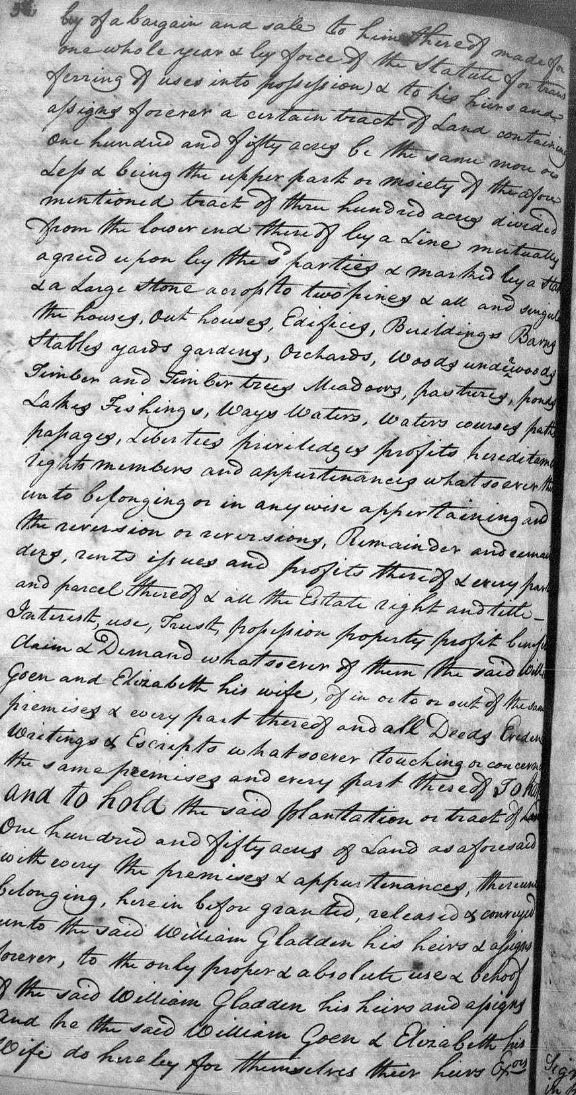 by of a bargain and sale to him thereof made for
one whole year & by force of the Statute for trans
ferring of uses into possession) & to his heirs and
assigns forever a certain tract of Land containing
One hundred and fifty acres be the same more or
Less & being the upper part or moiety of the afore
mentioned tract of three hundred acres divided
from the lower end thereof by a Line mutually
agreed upon by the sd parties & marked by a
& a Large Stone across to two pines & all and singula
the houses, Out houses, Edifices, Buildings Barns
Stables yards gardens, Orchards, Woods underwoods
Timber and Timber trees Meadows, pastures, ponds
Lakes Fishings, Ways Waters, waters courses path
passages, Liberties priviledges profits hereditam
rights members and appurtenances whatsoever the
unto belonging or in any wise appertaining and
the reversion or reversions, Remainder and remain
ders, rents issues and profits thereof & every part
and parcel thereof & all the Estate right and title
Interest, use, Trust, possession property profit benefit
Claim & Demand whatsoever of them the said Will
Goen and Elizabeth his wife, of in or to or out of the same
premises & every part thereof and all Deeds Eviden
Writings & Escripts whatsoever touching or concern
the same premises and every part thereof To ha
and to hold the said plantation or tract of Lan
One hundred and fifty acres of Land as aforesaid
with every the premises & appurtenances, thereun
belonging, herein before granted, released & conveyed
unto the said William Gladden his heirs & assigns
forever, to the only proper & absolute use & behoof
of the said William Gladden his heirs and assigns
and he the said William Goen & Elizabeth his
Wife do hereby for themselves their heirs Exors